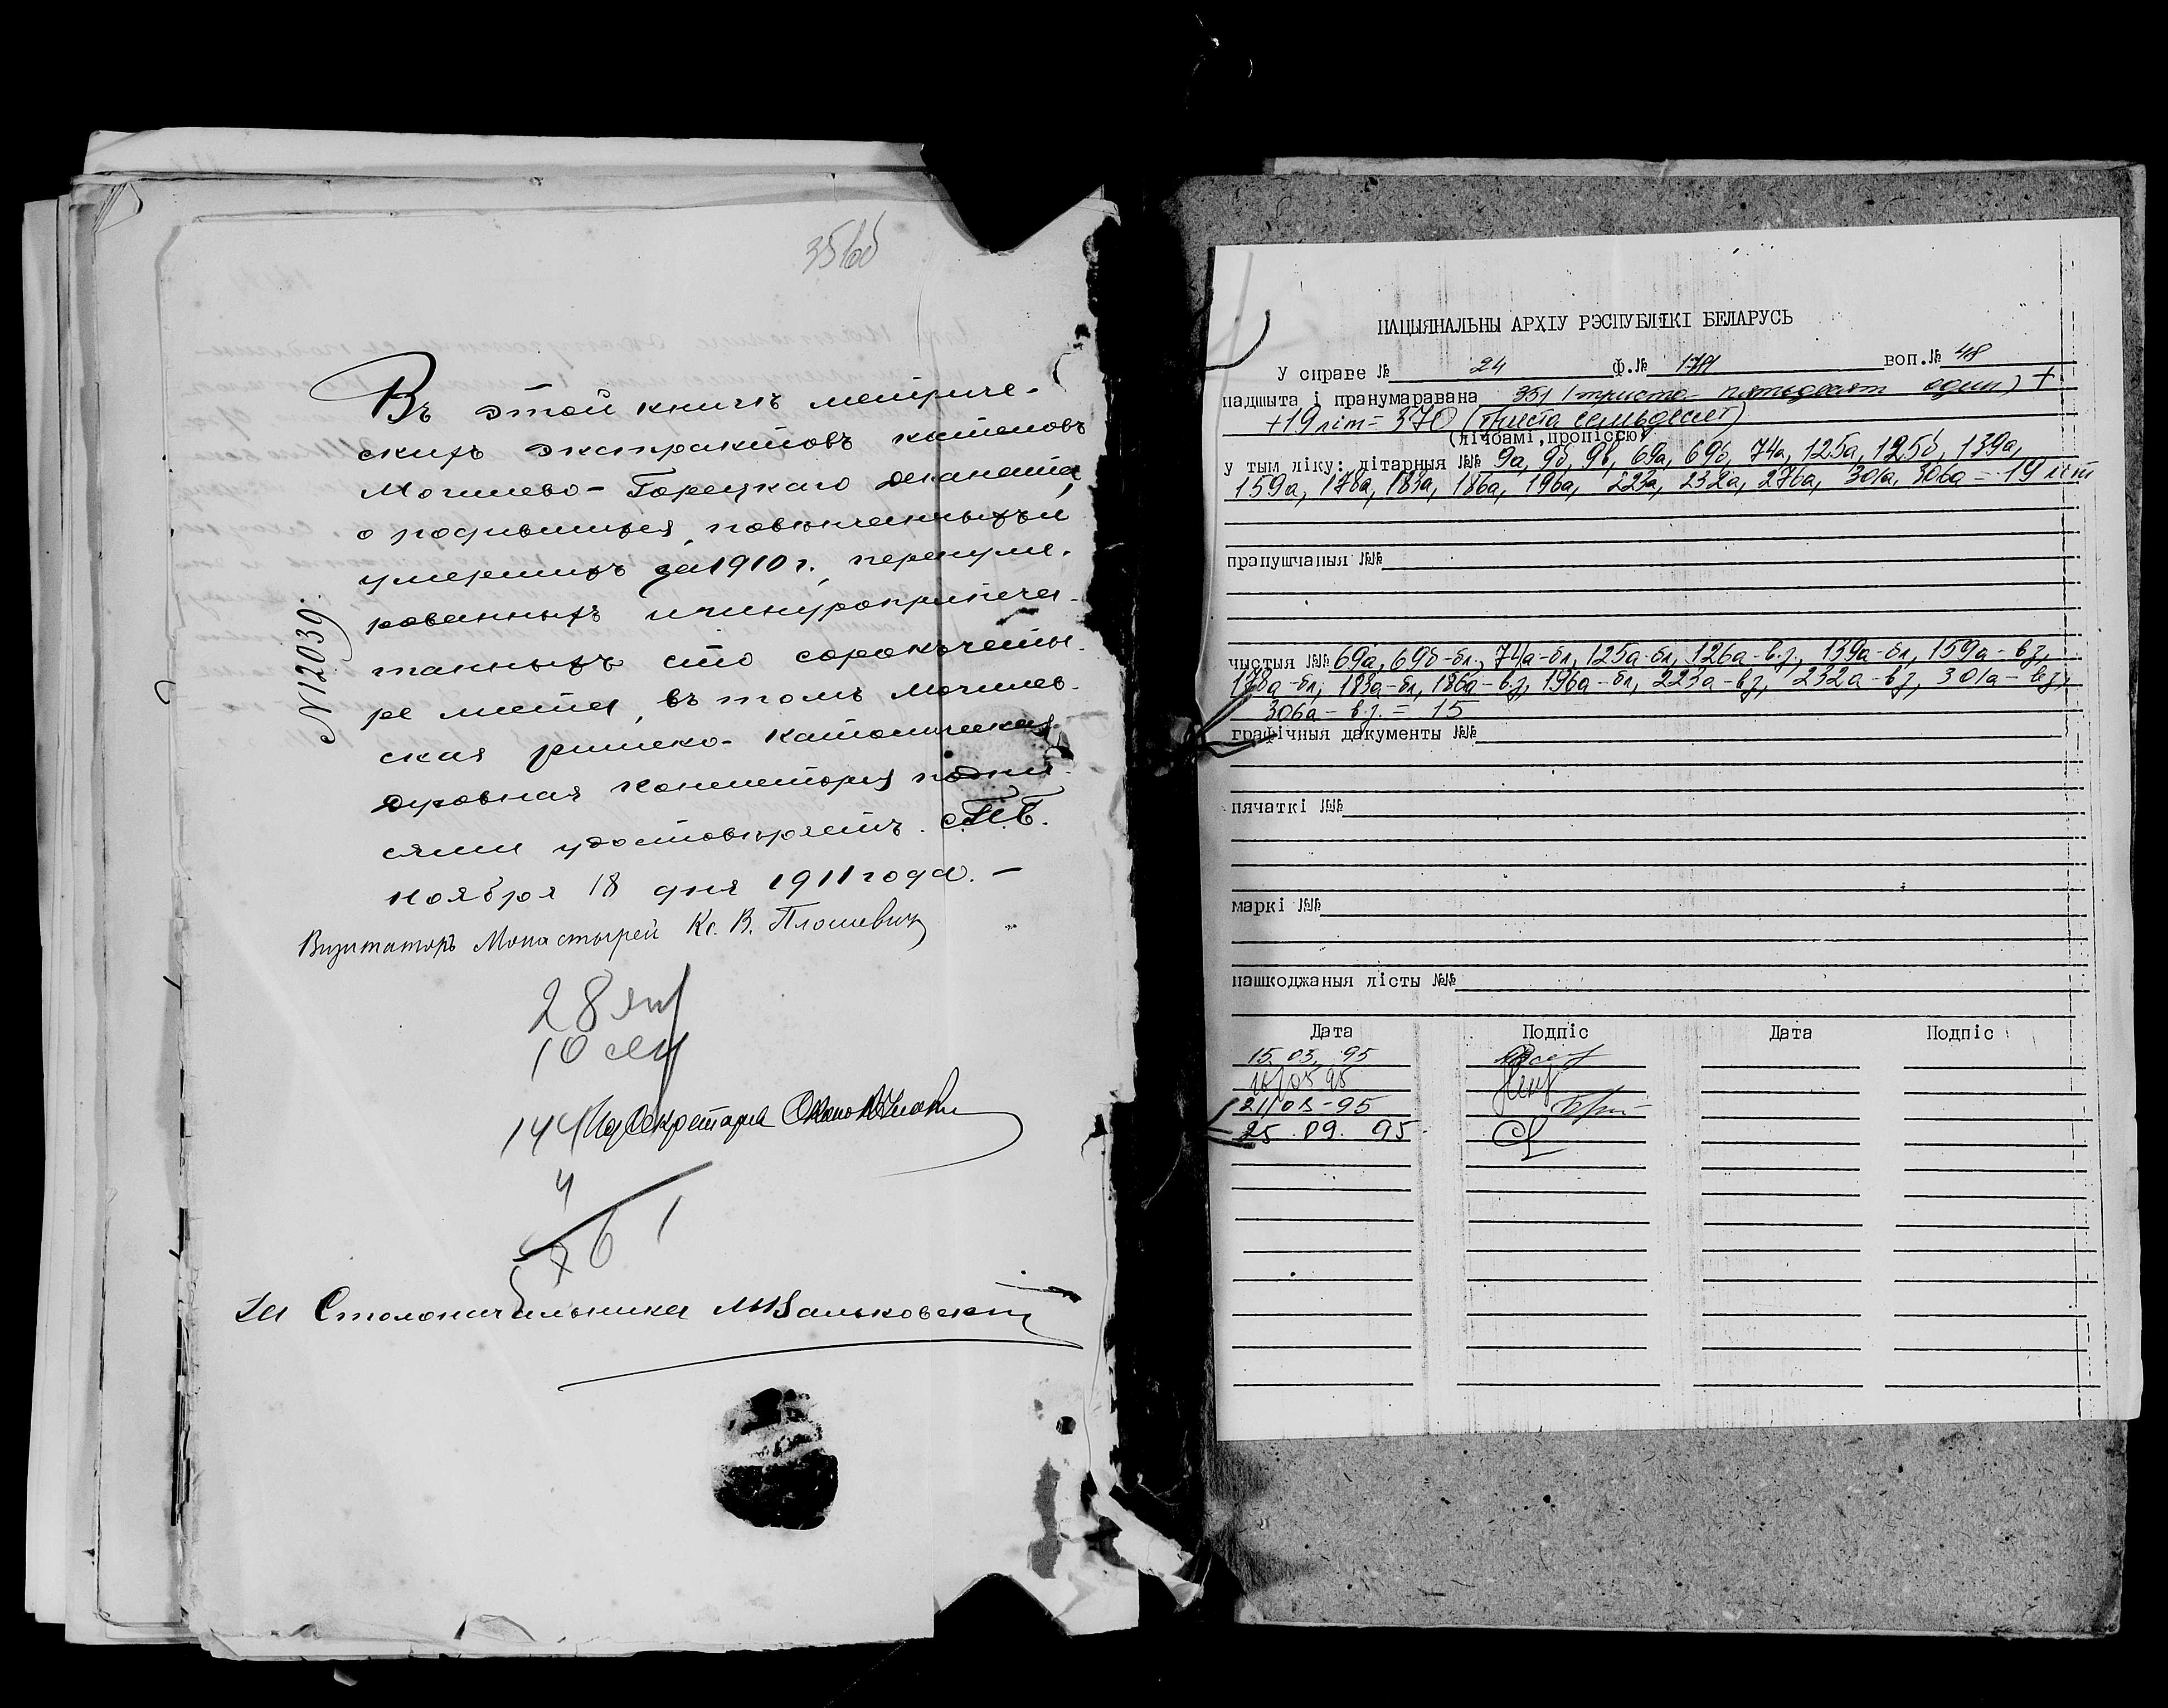 Въ этой книгѣ метриче-
скихъ экстрактовъ костеловъ
Могилево-Горецкаго деканата,
о родившихся, повѣнчанныхъ и
умершихъ за 1910 г., перенуме-
рованныхъ и шнуроприпеча-
танныхъ сто сорокъ четы-
ре листа, въ томъ Могилев-
ская римско-католическая
духовная консисторія подпи-
сями удостовѣряетъ. С.П.Б.
Ноября 18 дня 1911 года. -
N 12039.
Визитаторъ Монастырей Кс. В.
28
10
144 Секретаря
4
6 1
За Столоначальника
НАЦЫЯНАЛЬНЫ АРХІУ РЭСПУБЛІКІ БЕЛАРУСЬ
У справе № 24 ф.№ воп.№ 48
падшыта і пранумаравана 351 (триста пятьдесят один) +
+19 літ = 370 (триста семьдесят)
(лічбамі,пропіссю)
у тым ліку: літарныя №№ 9а, 9б, 9в, 69а, 69б, 74а, 125а, 125б, 139а,
159а, 178а, 183а, 186а, 196а, 223а, 232а, 276а, 301а, 306а = 19 літ
прапушчаныя №№
чыстыя №№ 69а, 69б-бл., 74а-бл, 125а-бл, 126а-в.з., 139а-бл, 159а-вз,
178а-бл, 183а-бл, 186а-в.з, 196а-бл, 223а-вз, 232а-вз, 301а-вз,
306а-в.з. = 15
графічныя дакументы №№
пячаткі №№
маркі №№
пашкоджаныя лісты №№
Дата Подпіс Дата Подпіс
15.03.95
16/0395
21/03-95
25.09.95